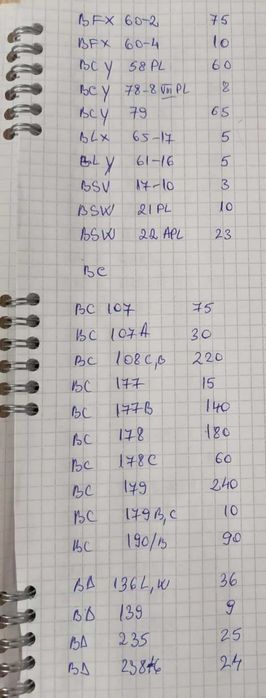 BFX 60-2 75
BFX 60-4 10
BCY 58PL 60
BCY 78-8 VIII PL 8
BCY 79 65
BLX 65-17 5
BLY 61-16 5
BSV 17-10 3
BSW 21PL 10
BSW 22APL 23
BC
BC 107 75
BC 107A 30
BC 108C,B 220
BC 177 15
BC 177B 140
BC 178 180
BC 178C 60
BC 179 240
BC 179B,C 10
BC 190/B 90
BD 136L,W 36
BD 139 9
BD 235 25
BD 24